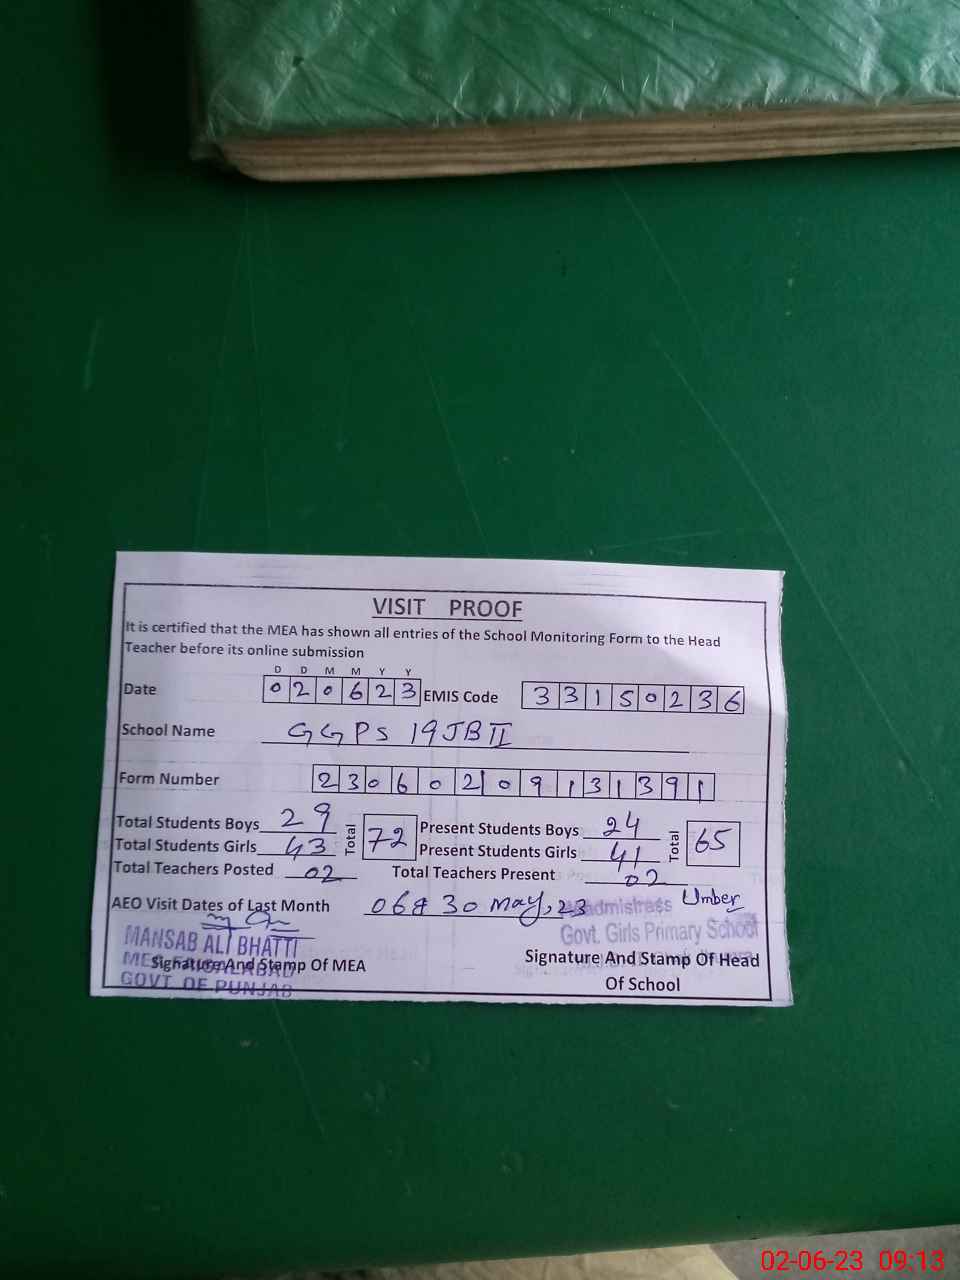 VISIT PROOF
It is certified that the MEA has shown all entries of the School Monitoring Form to the Head
Teacher before its online submission
D D M M Y Y
Date 0 2 0 6 2 3 EMIS Code 3 3 1 5 0 2 3 6
School Name GGPS 19JB II
Form Number 2 3 0 6 0 2 0 9 1 3 1 3 9 1
Total Students Boys 29 Total 72 Present Students Boys 24 Total 65
Total Students Girls 43 Present Students Girls 41
Total Teachers Posted 02 Total Teachers Present 02
AEO Visit Dates of Last Month 06 & 30 May, 23
admistress Umber
MANSAB ALI BHATTI Govt. Girls Primary School
MEA FAISALABAD
Signature And Stamp Of MEA Signature And Stamp Of Head
GOVT. OF PUNJAB Of School
02-06-23 09:13